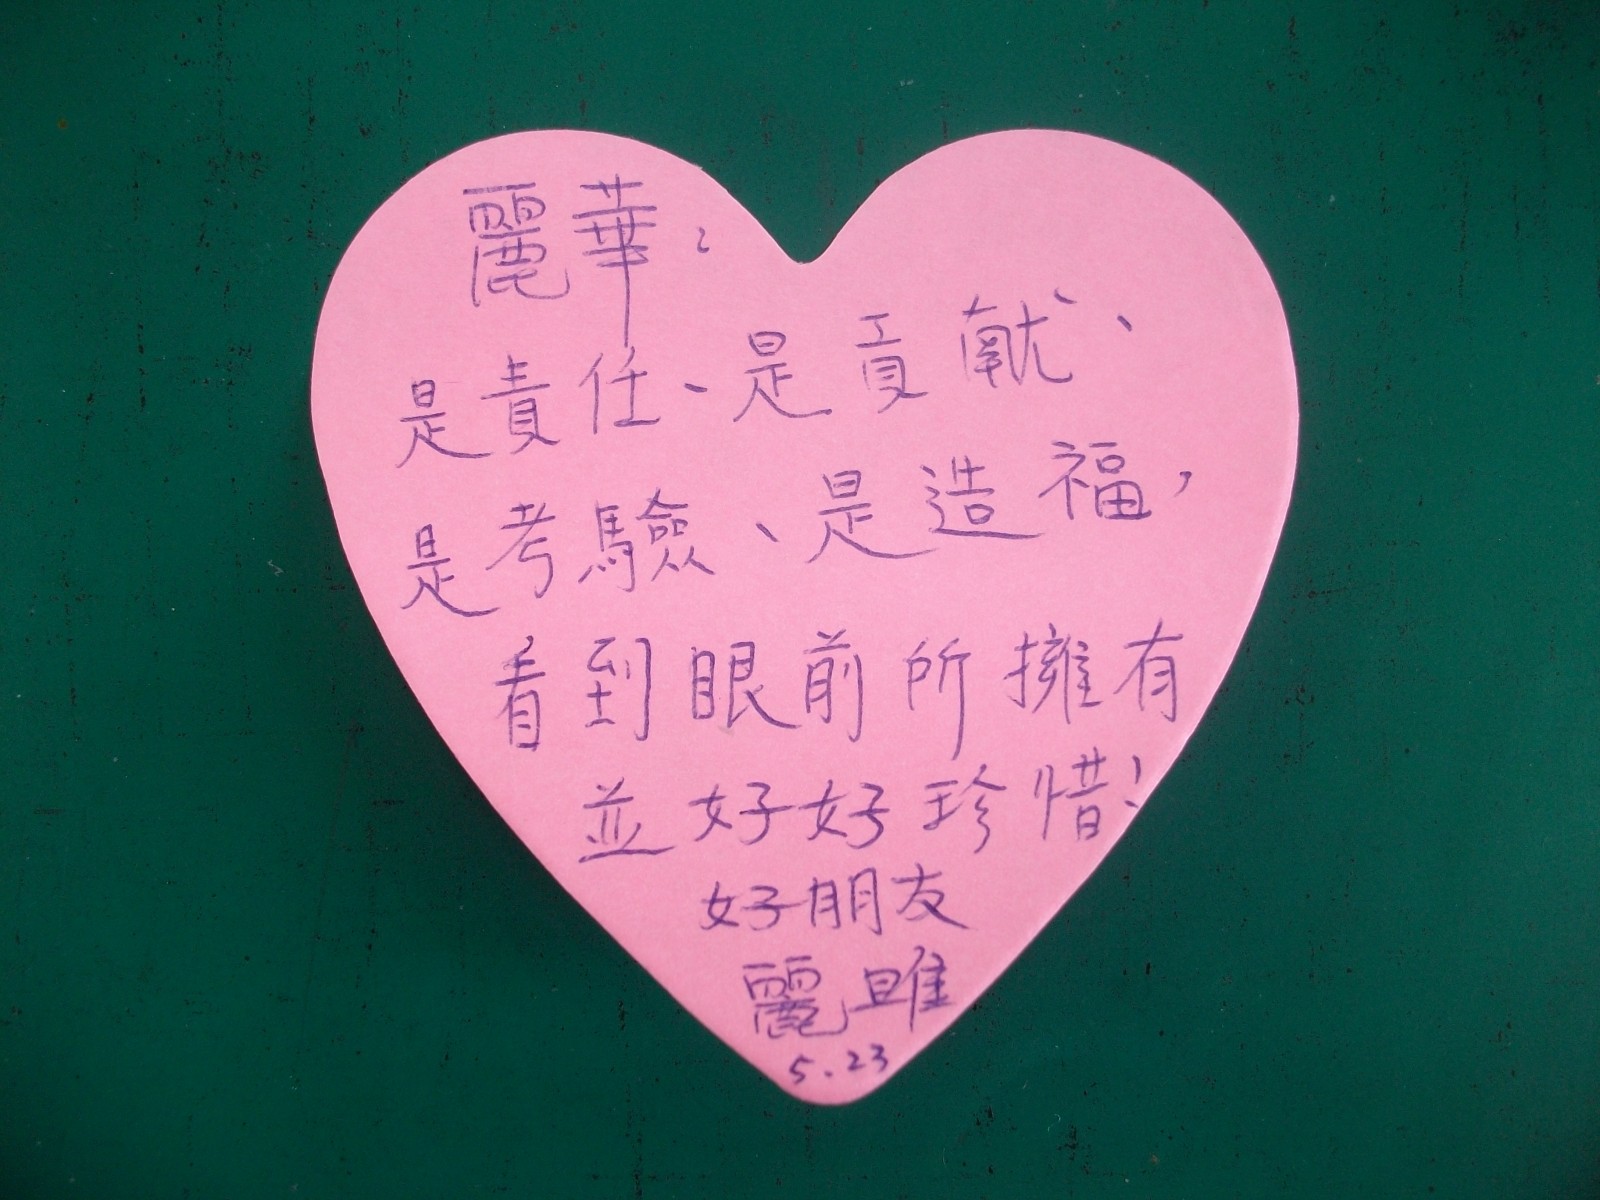 麗華：
是責任、是貢献、
是考驗、是造福，
看到眼前所擁有
並好好珍惜！
好朋友
麗雎
5.23